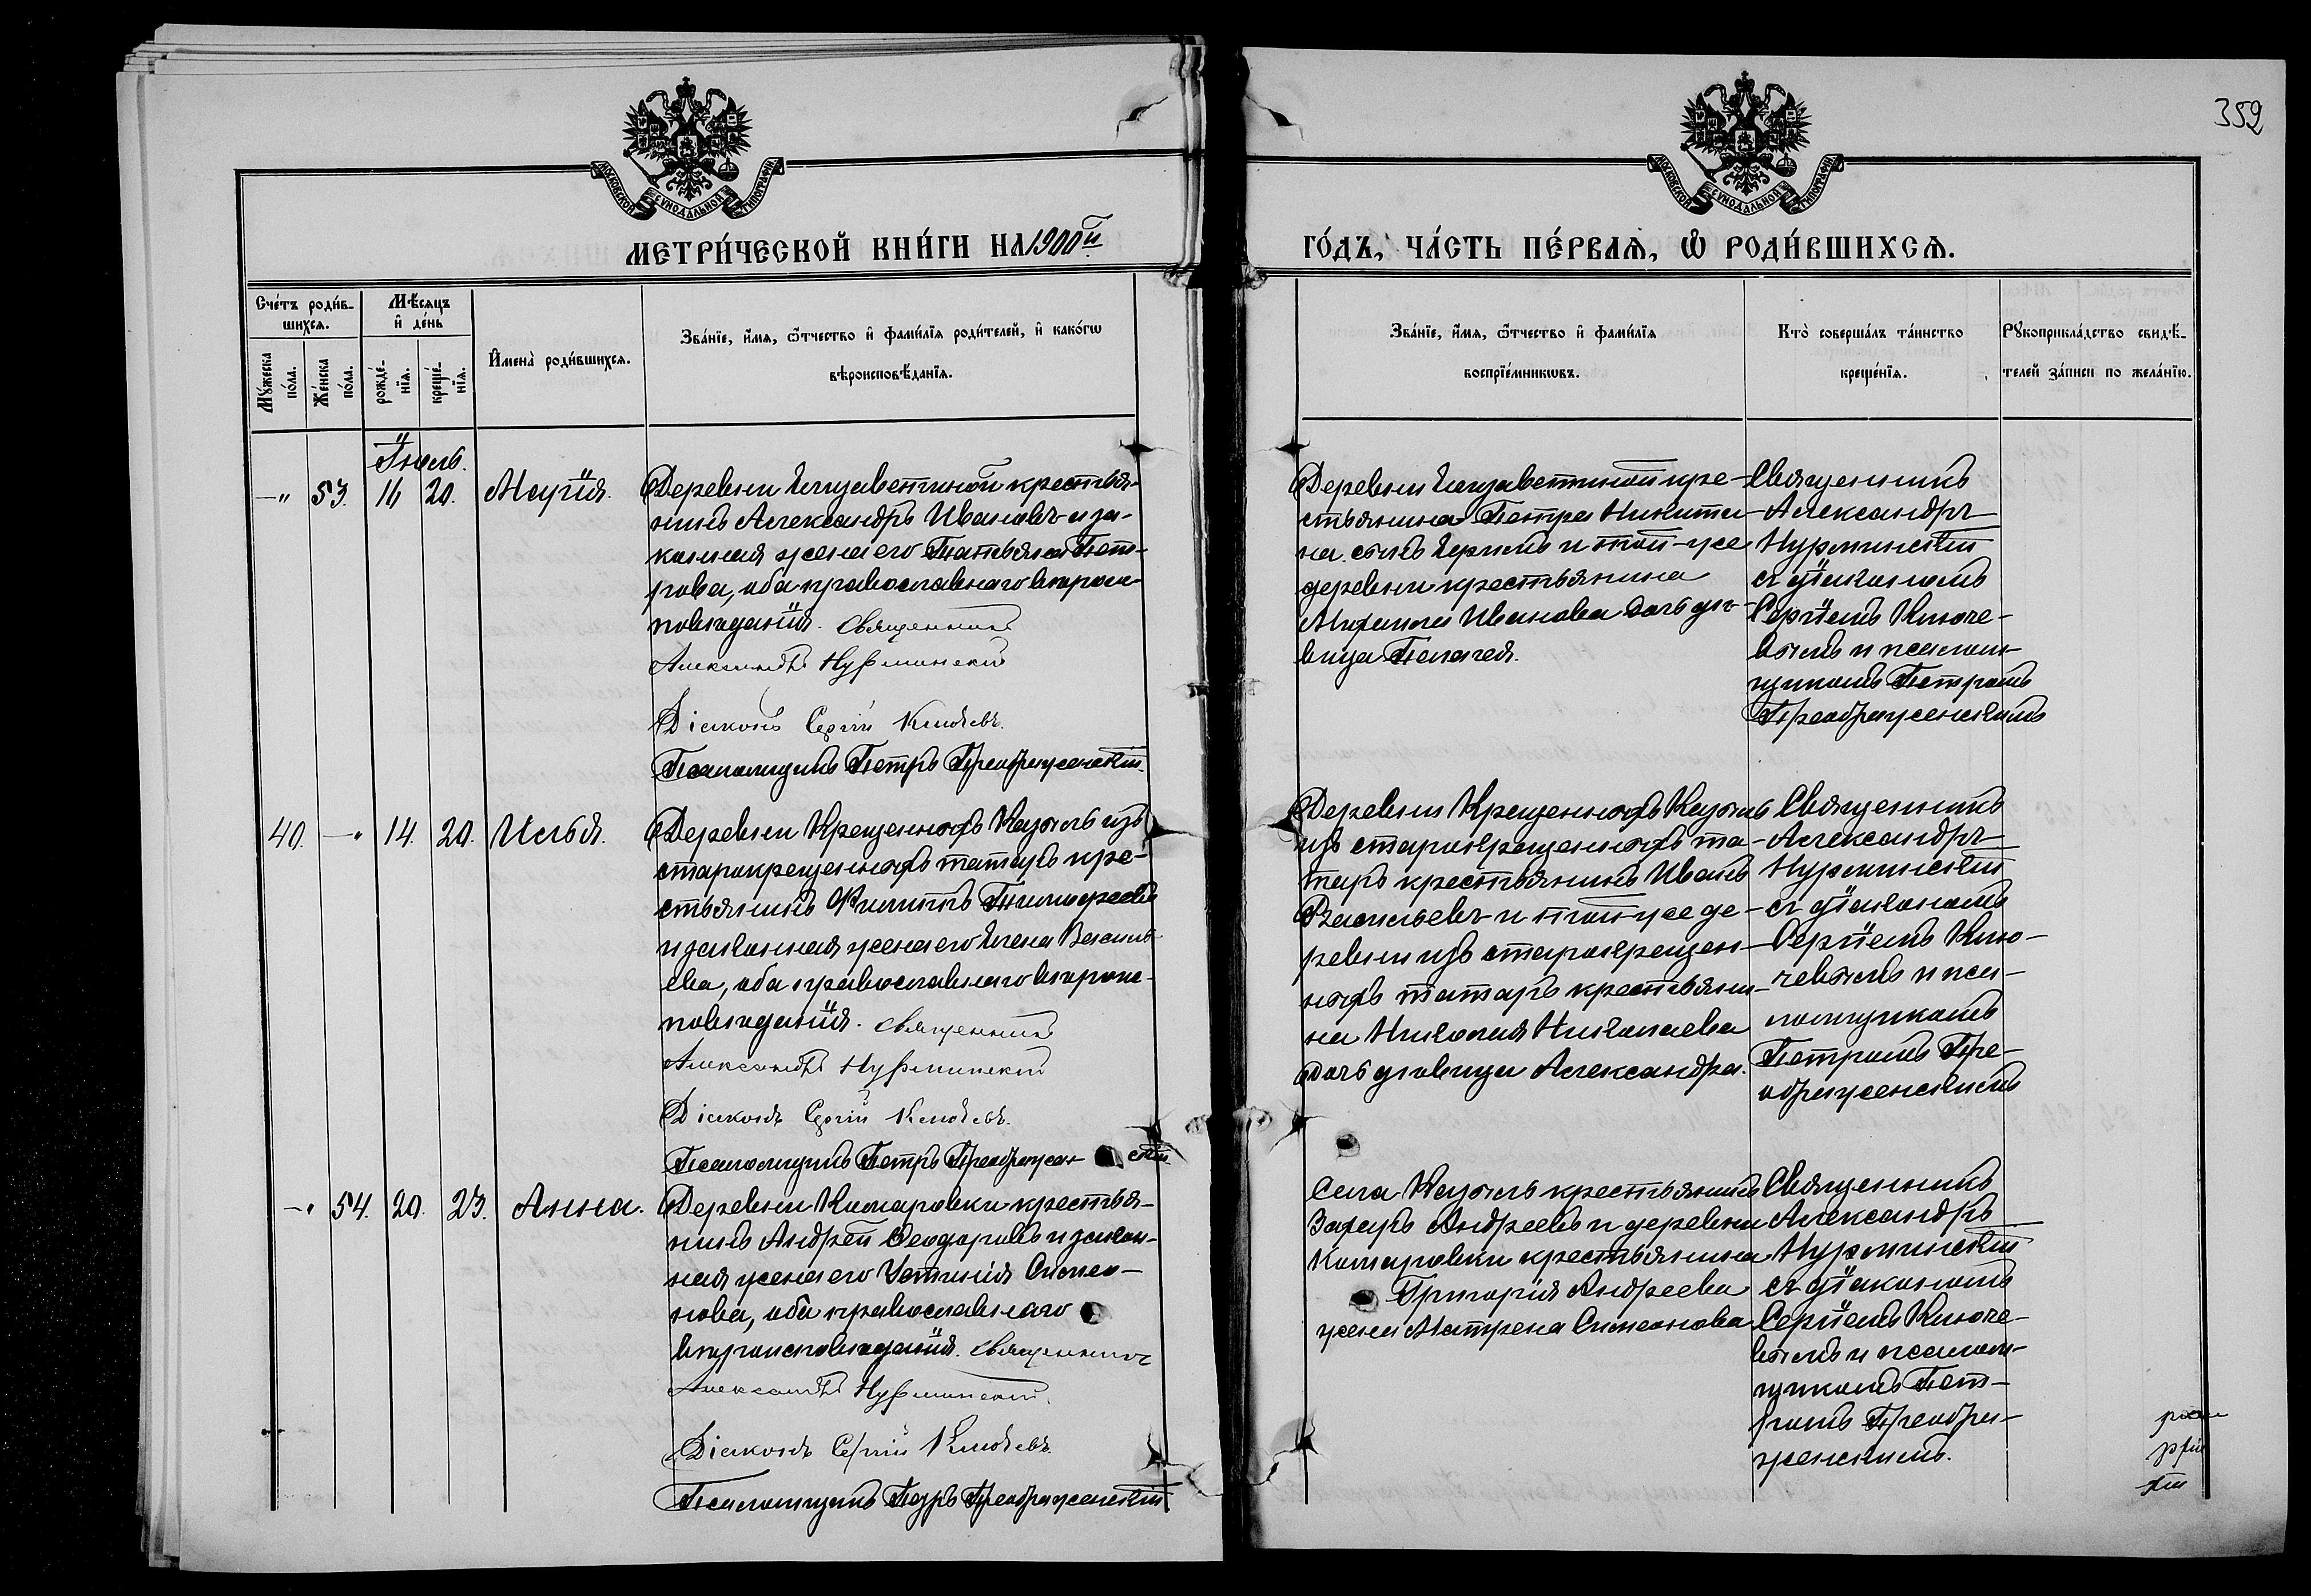 359
МОСКОВСКОЙ СѴНОДАЛЬНОЙ ТИПОГРАФІИ
МОСКОВСКОЙ СѴНОДАЛЬНОЙ ТИПОГРАФІИ
МЕТРИ́ЧЕСКОЙ КНИ́ГИ НА 1900й
ГО́ДЪ, ЧА́СТЬ ПЕ́РВАѦ, Ѡ РОДИ́ВШИХСѦ.
Сче́тъ роди́в-
шихсѧ.
Мѣ́сѧцъ
и҆ де́нь
Мꙋ́жеска
по́ла.
Же́нска
по́ла.
рожде́-
нїѧ.
креще́-
нїѧ.
И҆мена̀ роди́вшихсѧ.
Зва́нїе, и҆́мѧ, ѻ҆́тчество и҆ фами́лїѧ роди́телей, и҆ како́гѡ
вѣроисповѣ́данїѧ.
Зва́нїе, и҆́мѧ, ѻ҆́тчество и҆ фами́лїѧ
воспрїе́мникѡвъ.
Кто̀ соверша́лъ та́инство
креще́нїѧ.
Рꙋкоприкла́дство свидѣ́-
телей за́писи по жела́нїю.
Іюль.
—" 53. 16 20. Марія.
Деревни Елизаветиной крестья-
нинъ Александръ Ивановъ и за-
конная жена его Татьяна Пет-
рова, оба православнаго вѣроис-
повѣданія. Священникъ
Александръ Нурминскій
Діаконъ Сергій Ключевъ.
Псаломщикъ Петръ Преображенскій.
Деревни Елизаветиной кре-
стьянина Петра Никити-
на сынъ Ермилъ и той-же
деревни крестьянина
Михаила Иванова дочь дѣ-
вица Пелагея.
Священникъ
Александръ
Нурминскій
съ діакономъ
Сергіемъ Ключе-
вымъ и псалом-
щикомъ Петромъ
Преображенскимъ
40. —" 14. 20. Илья.
Деревни Крещенныхъ Казыль изъ
старокрещенныхъ татаръ кре-
стьянинъ Филиппъ Тимофеевъ
и законная жена его Елена Василь-
ева, оба православнаго вѣроис-
повѣданія. Священникъ
Александръ Нурминскій
Діаконъ Сергій Ключевъ.
Псаломщикъ Петръ Преображенскій
Деревни Крещенныхъ Казыль
изъ старокрещенныхъ та-
таръ крестьянинъ Иванъ
Васильевъ и той же де-
ревни изъ старокрещен-
ныхъ татаръ крестьяни-
на Николая Николаева
дочь дѣвица Александра.
Священникъ
Александръ
Нурминскій
съ діакономъ
Сергіемъ Клю-
чевымъ и пса-
ломщикомъ
Петромъ Пре-
ображенскимъ
—" 54. 20. 23. Анна.
Деревни Комаровки крестья-
нинъ Андрей Ѳеодоровъ и закон-
ная жена его Устинія Симео-
нова, оба православнаго
вѣроисповѣданія. Священникъ
Александръ Нурминскій.
Діаконъ Сергій Ключевъ.
Псаломщикъ Петръ Преображенскій
Села Казыль крестьянинъ
Захаръ Андреевъ и деревни
Комаровки крестьянина
Григорія Андреева
жена Матрена Симеонова
Священникъ
Александръ
Нурминскій
съ діакономъ
Сергіемъ Ключе-
вымъ и псалом-
щикомъ Пет-
ромъ Преобра-
женскимъ.